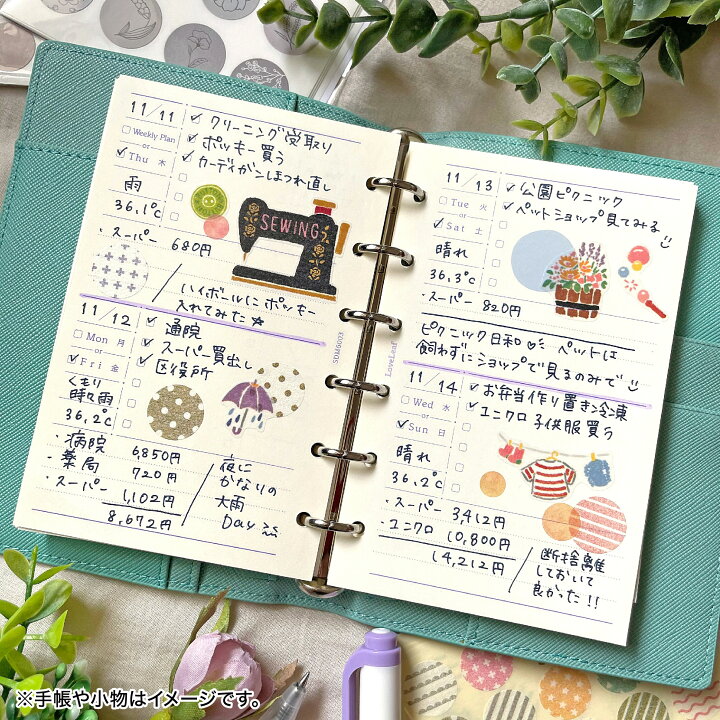 11/11
Weekly Plan
or
Thu 木
雨
36.1℃
クリーニング受取り
ポッキー買う
カーディガンほつれ直し
SEWING
・スーパー 680円
ハイボールにポッキー
入れてみた☆
11/12
Mon 月
or
Fri 金
くもり
時々雨
36.2℃
通院
スーパー買出し
区役所
・病院 6850円
・薬局 720円
・スーパー 1,102円
8,672円
夜に
かなりの
大雨
Day
SDM6093
LoveLeaf
11/13
Tue 火
or
Sat 土
晴れ
36.3℃
公園ピクニック
ペットショップ見てみる
・スーパー 820円
ピクニック日和♡ ペットは
飼わずにショップで見るのみで
11/14
Wed 水
or
Sun 日
晴れ
36.2℃
お弁当作り置き冷凍
ユニクロ子供服買う
・スーパー 3,412円
・ユニクロ 10,800円
14,212円
断捨離
しておいて
良かった!!
※手帳や小物はイメージです。